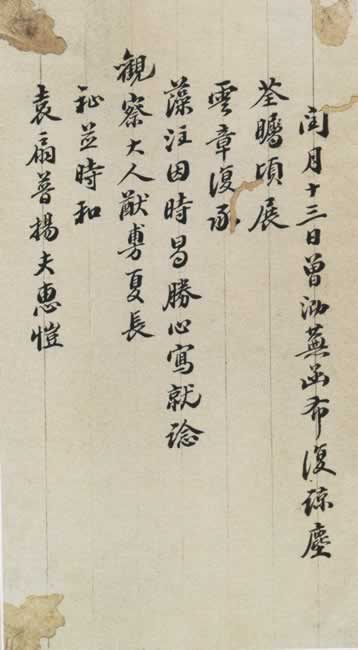 閏月十三日曾泐蕪函布復諒塵
荃矚頃展
雲章復承
藻注因時曷勝心寫就諗
觀察大人猷旉夏長
祉並時和
袁扇普揚夫惠愷